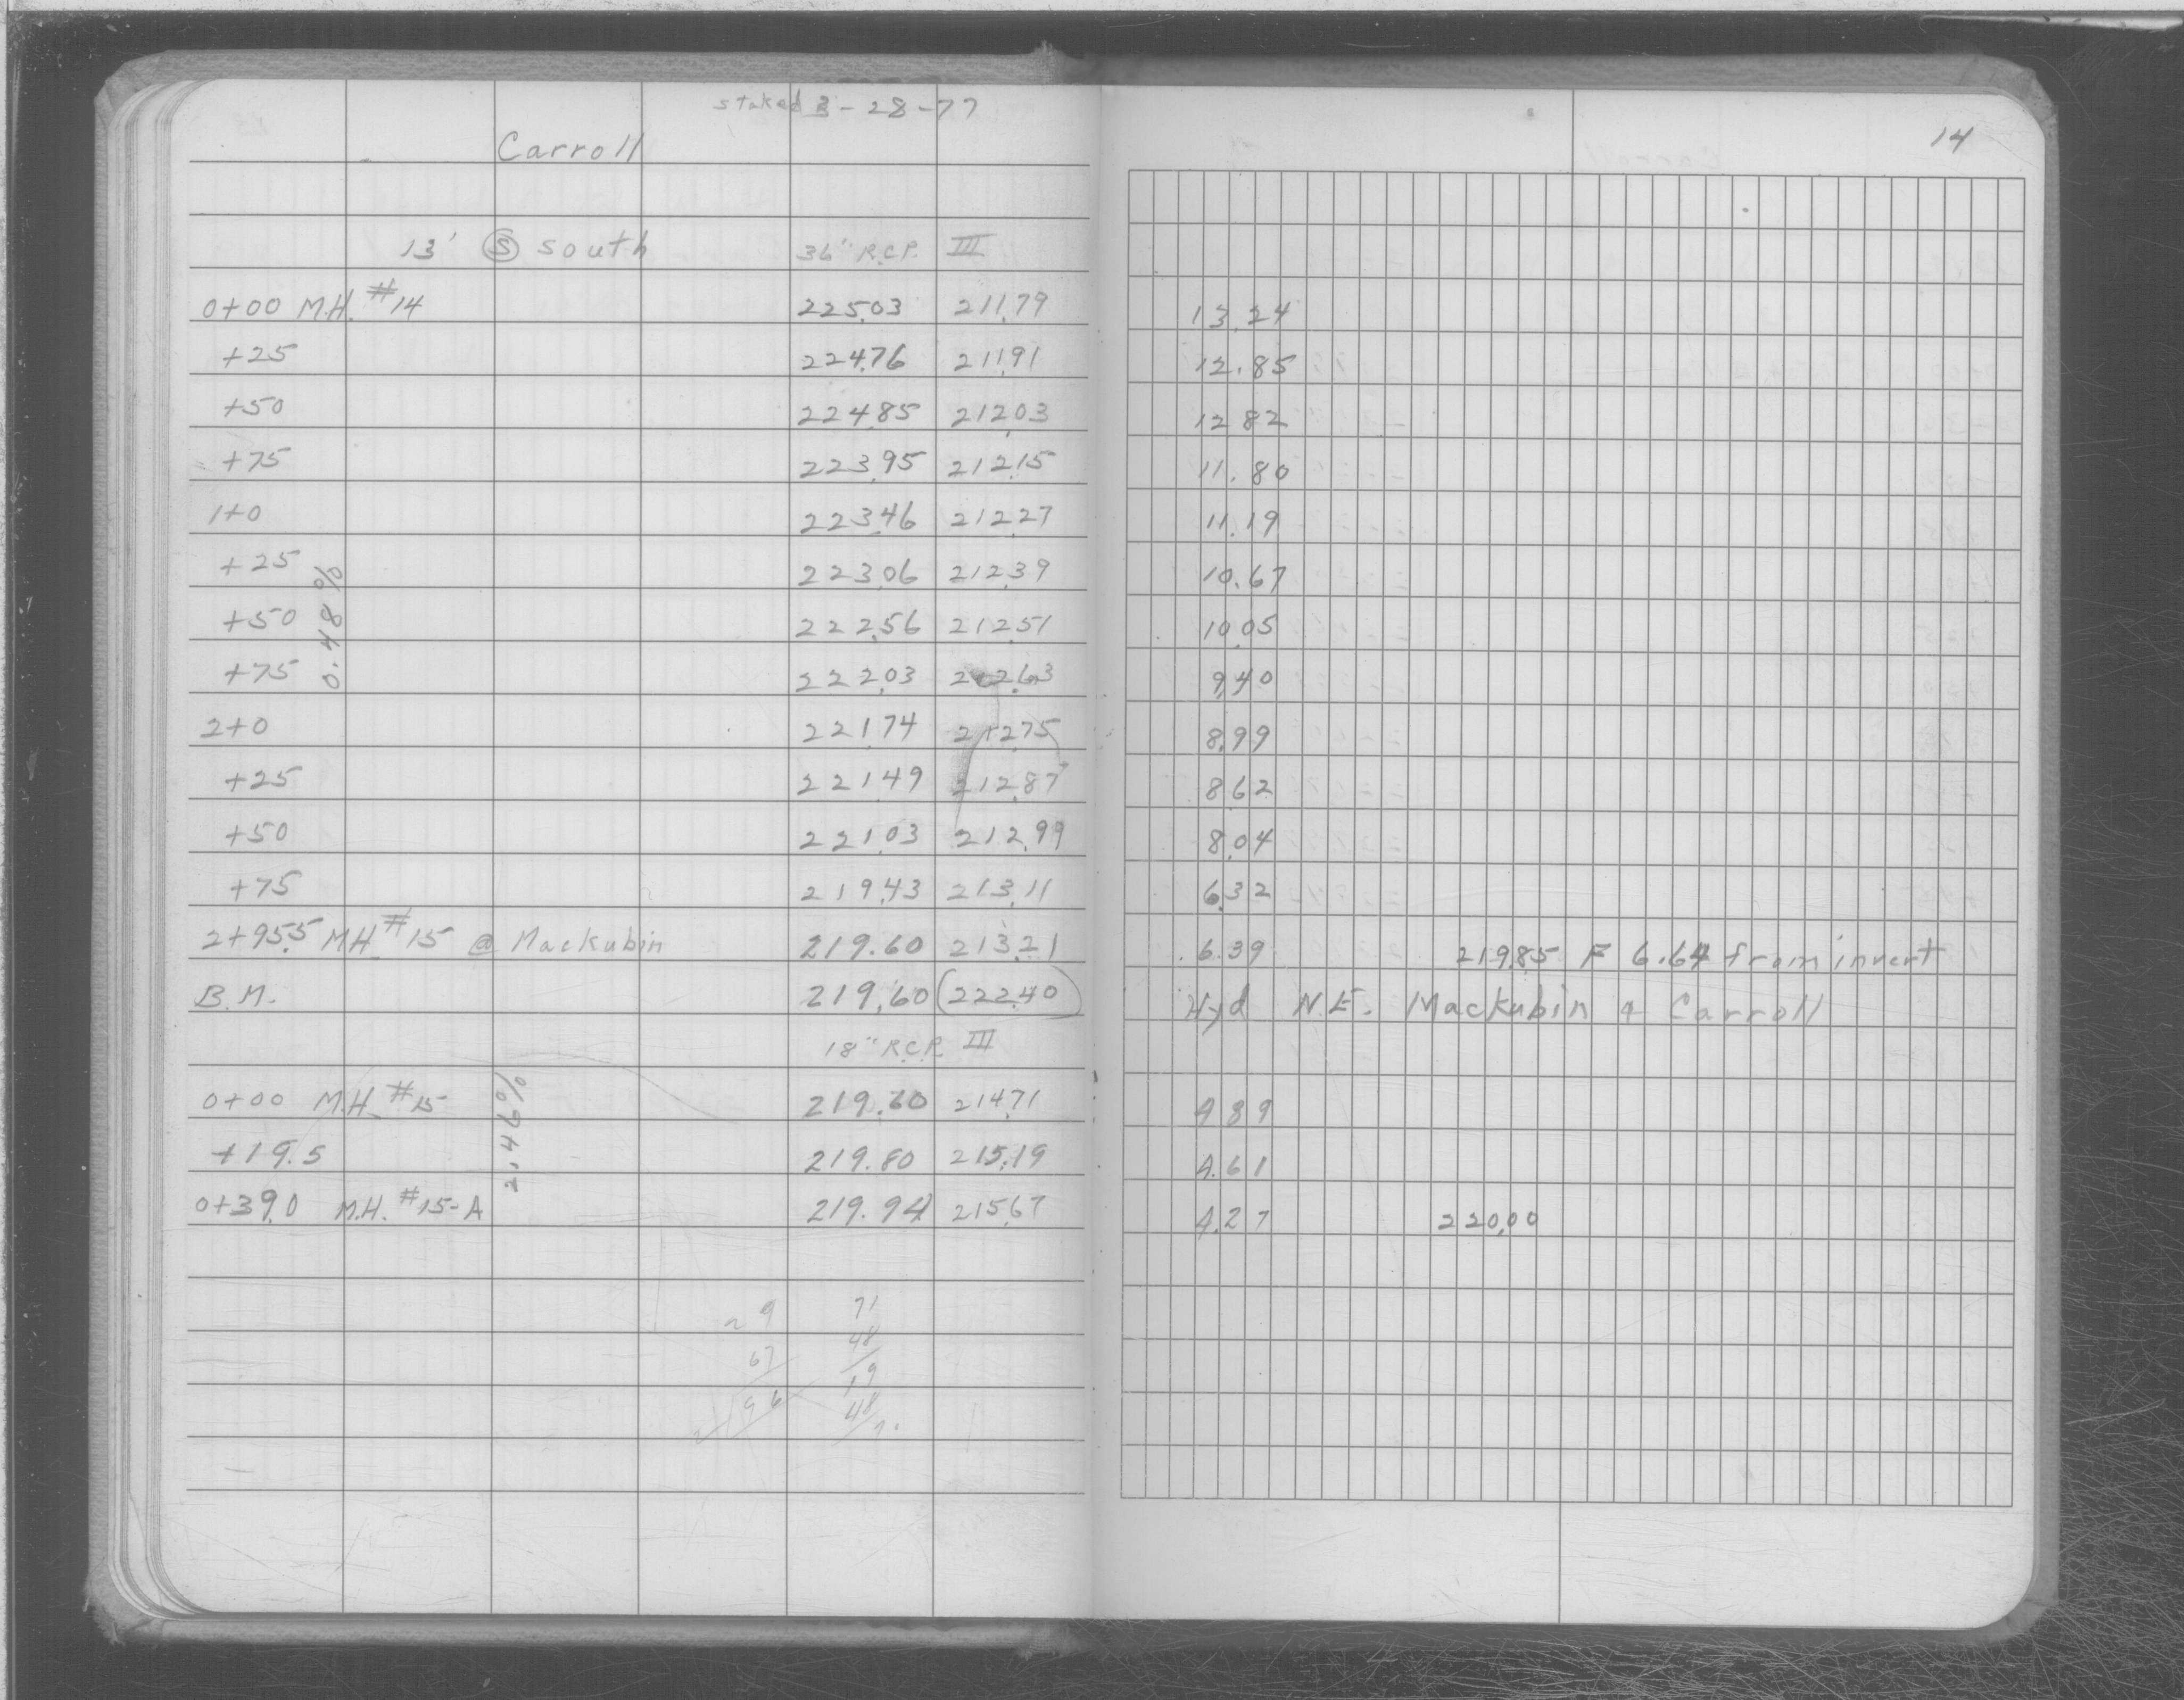 staked 3-28-77
14
Carroll
13' Ⓢ south 36" R.C.P. III
0+00 M.H. #14 225.03 211.79 13.24
+25 224.76 211.91 12.85
+50 224.85 212.03 12 82
+75 223.95 212.15 11.80
1+0 223.46 212.27 11.19
+25 223.06 212.39 10.67
+50 222.56 212.51 10.05
+75 222.03 212.63 9.40
2+0 221.74 212.75 8.99
+25 221.49 212.87 8.62
+50 221.03 212.99 8.04
+75 219.43 213.11 6.32
0.48%
2+95.5 M.H. #15 @ Mackubin 219.60 213.21 6.39 219.85 F 6.64 from invert
B.M. 219.60 (222.40) Hyd N.E. Mackubin & Carroll
18" R.C.P. III
0+00 M.H. #15 219.60 214.71 4 89
+19.5 219.80 215.19 4.61
0+39.0 M.H. #15-A 219.94 215.67 4.27 220.00
2.46%
9 71
67 48
96 19
48